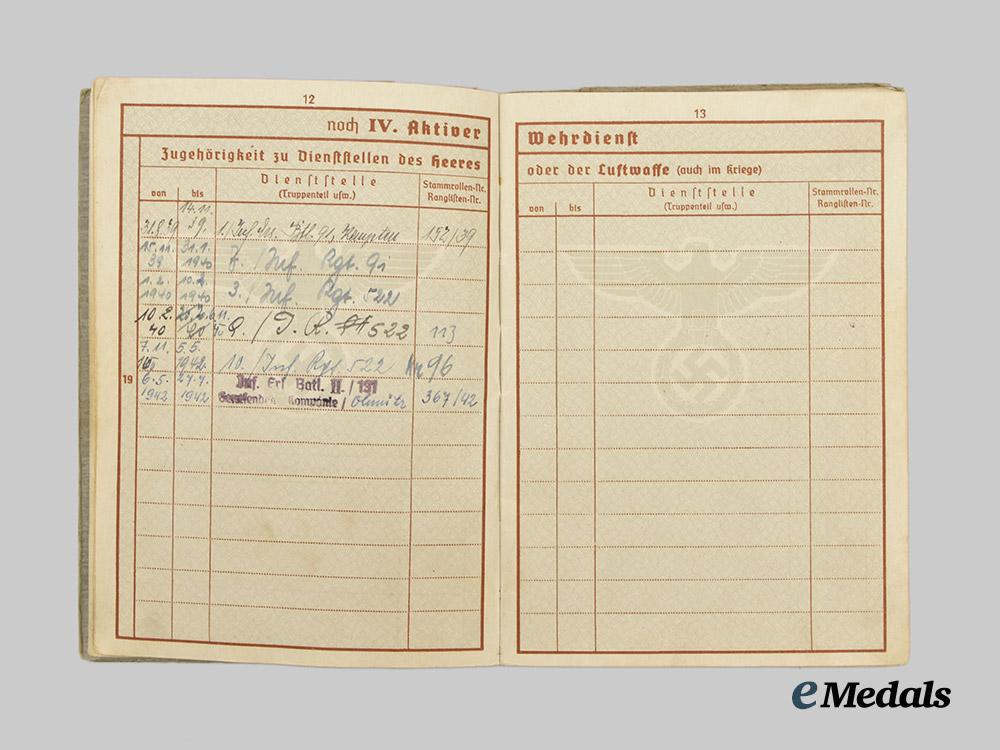 12
noch IV. Aktiver
Zugehörigkeit zu Dienststellen des Heeres
von bis Dienststelle (Truppenteil usw.) Stammrollen-Nr. Ranglisten-Nr.
14.11.
31.8.39 39. 152/39
15.11. 31.1.
39 1940 7. /Inf. Rgt. 91
1.2. 10.2.
1940 1940 3. /Inf. Rgt. 522
10.2.
40 /I.R. 522 113
7.11. 5.5.
1942 10. /Inf. Rgt. 522 96
19
6.5. 27.7. Inf. Erf Batl. II./131
1942 1942 Genesenden Kompanie/Olmütz 367/42
13
Wehrdienst
oder der Luftwaffe (auch im Kriege)
von bis Dienststelle (Truppenteil usw.) Stammrollen-Nr. Ranglisten-Nr.
eMedals